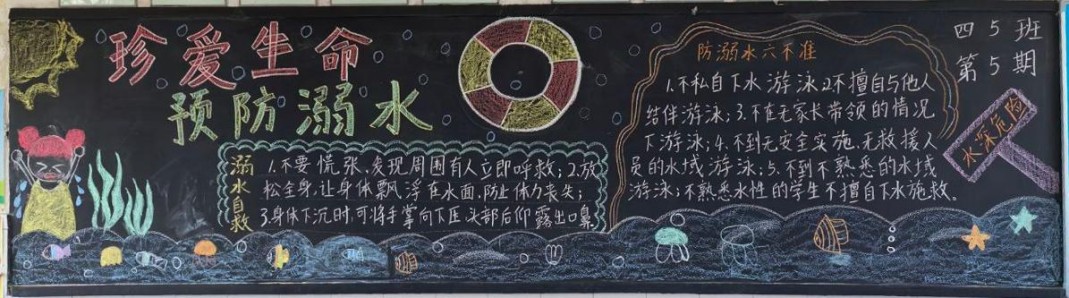 珍爱生命
预防溺水
溺水自救
1.不要慌张、发现周围有人立即呼救；2.放
松全身，让身体飘浮在水面，防止体力丧失；
3.身体下沉时，可将手掌向下压头部后仰露出口鼻
防溺水六不准
1.不私自下水游泳2.不擅自与他人
结伴游泳；3.不在无家长带领的情况
下游泳；4.不到无安全实施、无救援人
员的水域游泳；5.不到不熟悉的水域
游泳；不熟悉水性的学生不擅自下水施救。
四5班
第5期
水深危险